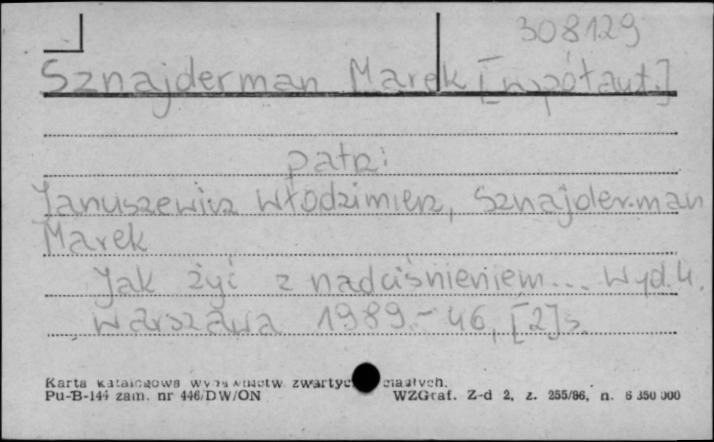 308129
Sznajderman Marek [współaut.]
patrz:
Januszewicz Włodzimierz, Sznajderman
Marek
Jak żyć z nadciśnieniem... Wyd. 4.
Warszawa 1989.- 46, [2] s.
Karta katalogowa wydawnictw zwartych ciągłych.
Pu-B-144 zam. nr 446/DW/ON WZGraf. Z-d 2, z. 255/86, n. 6 350 000